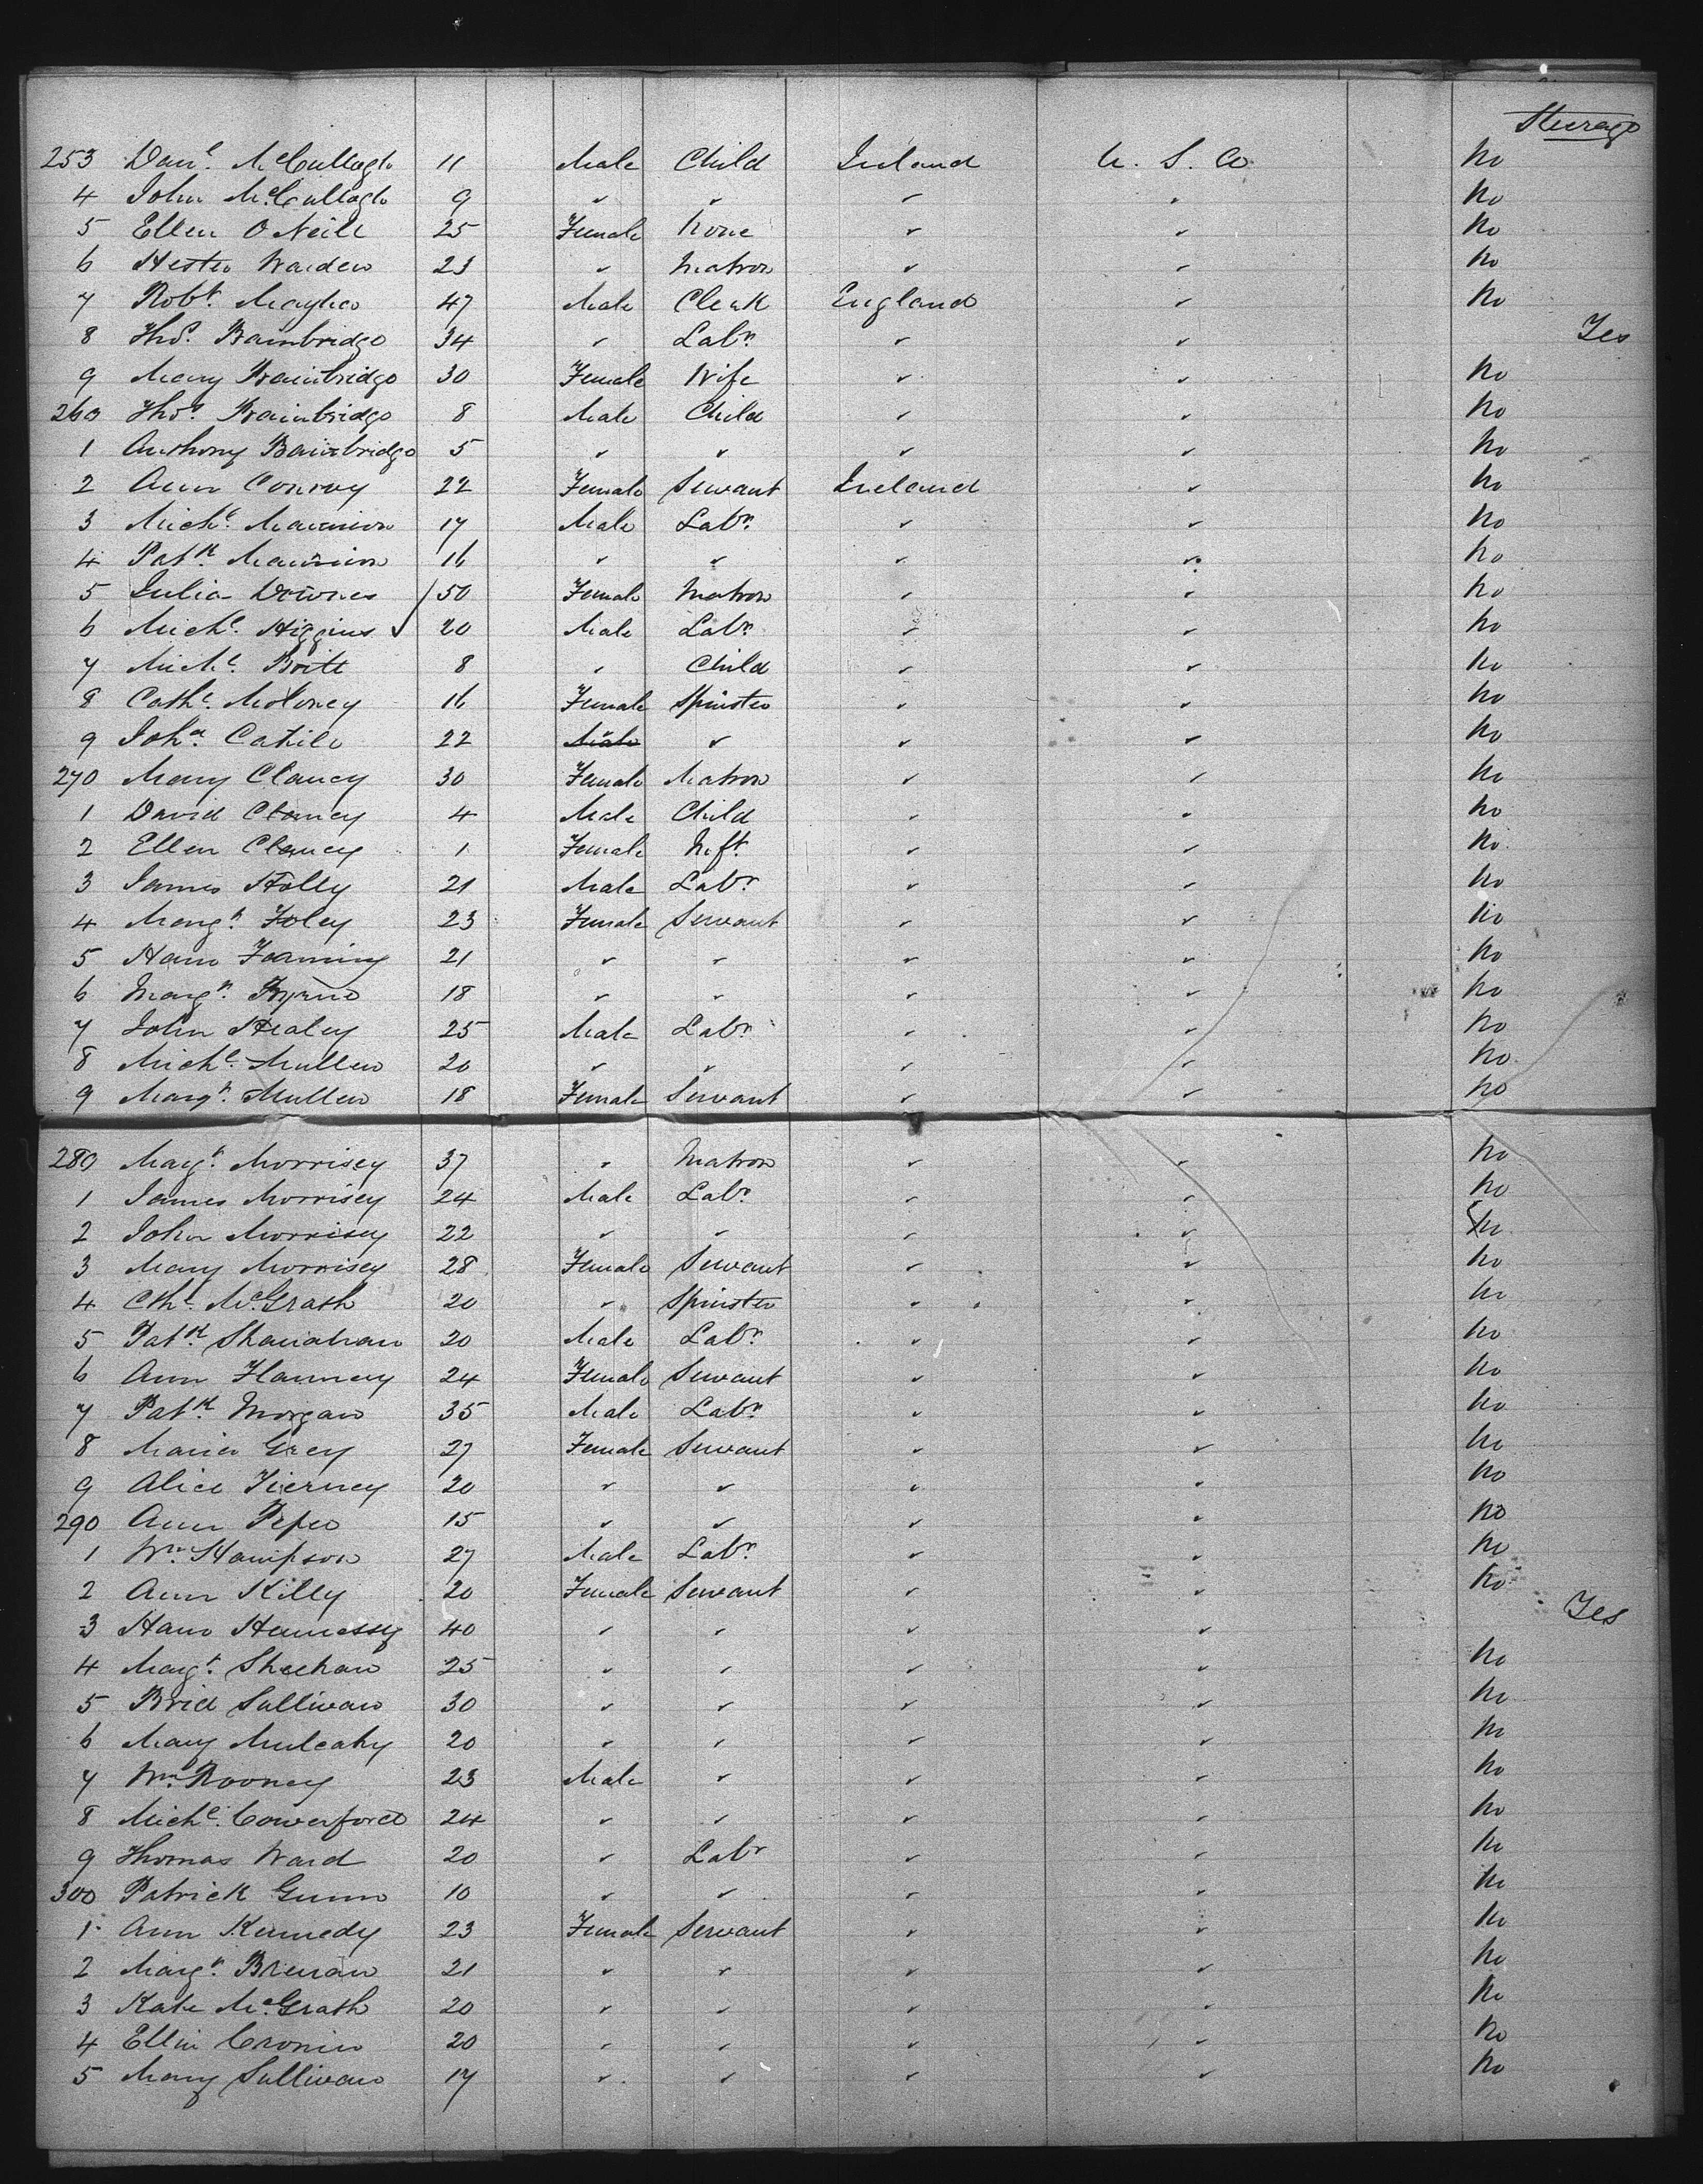 Steerage
253 Danl. McCullagh 11 Male Child Ireland U. S. Co No
4 John McCullagh 9 " " " " No
5 Ellen O Neill 25 Female None " " No
6 Hester Warden 23 " Matron " " No
7 Robt. 47 Male Clerk England " No
8 Thos. Bainbridge 34 " Labr. " " Yes
9 Mary Bainbridge 30 Female Wife " " No
260 Thos. Bainbridge 8 Male Child " " No
1 Anthony Bainbridge 5 " " " " No
2 Ann Conroy 22 Female Servant Ireland " No
3 Michl. Mannion 17 Male Labr. " " No
4 Patk. Mannion 16 " " " " No
5 Julia Downes 50 Female Matron " " No
6 Michl. Higgins 20 Male Labr. " " No
7 Michl. Britt 8 " Child " " No
8 Cathe. Moloney 16 Female Spinster " " No
9 Joha. Cahile 22 Male " " " No
270 Mary Clancy 30 Female Matron " " No
1 David Clancy 4 Male Child " " No
2 Ellen Clancy 1 Female Inft. " " No
3 James Holly 21 Male Labr. " " No
4 Margt. Foley 23 Female Servant " " No
5 Hano Fanning 21 " " " " No
6 Margt. Byrne 18 " " " " No
7 John Healey 25 Male Labr. " " No
8 Michl. Mullen 20 " " " " No
9 Margt. Mullen 18 Female Servant " " No
280 Margt. Morrisey 37 " Matron " " No
1 James Morrisey 24 Male Labr. " " No
2 John Morrisey 22 " " " " No
3 Mary Morrisey 28 Female Servant " " No
4 Cthe. McGrath 20 " Spinster " " No
5 Patk. Shanahan 20 Male Labr. " " No
6 Ann Flannery 24 Female Servant " " No
7 Patk. Morgan 35 Male Labr. " " No
8 Maria Grey 27 Female Servant " " No
9 Alice Tierney 20 " " " " No
290 Ann 15 " " " " No
1 Wm. Hampson 27 Male Labr. " " No
2 Ann Killy 20 Female Servant " " No
3 Hano Hennessy 40 " " " " Yes
4 Margt. Sheehan 25 " " " " No
5 Brid Sullivan 30 " " " " No
6 Mary Mulcahy 20 " " " " No
7 Wm. Rooney 23 Male " " " No
8 Michl. 24 " " " " No
9 Thomas Ward 20 " Labr " " No
300 Patrick Gunn 10 " " " " No
1 Ann Kennedy 23 Female Servant " " No
2 Margt. Brenan 21 " " " " No
3 Kate McGrath 20 " " " " No
4 Ellin Cronin 20 " " " " No
5 Mary Sullivan 17 " " " " No